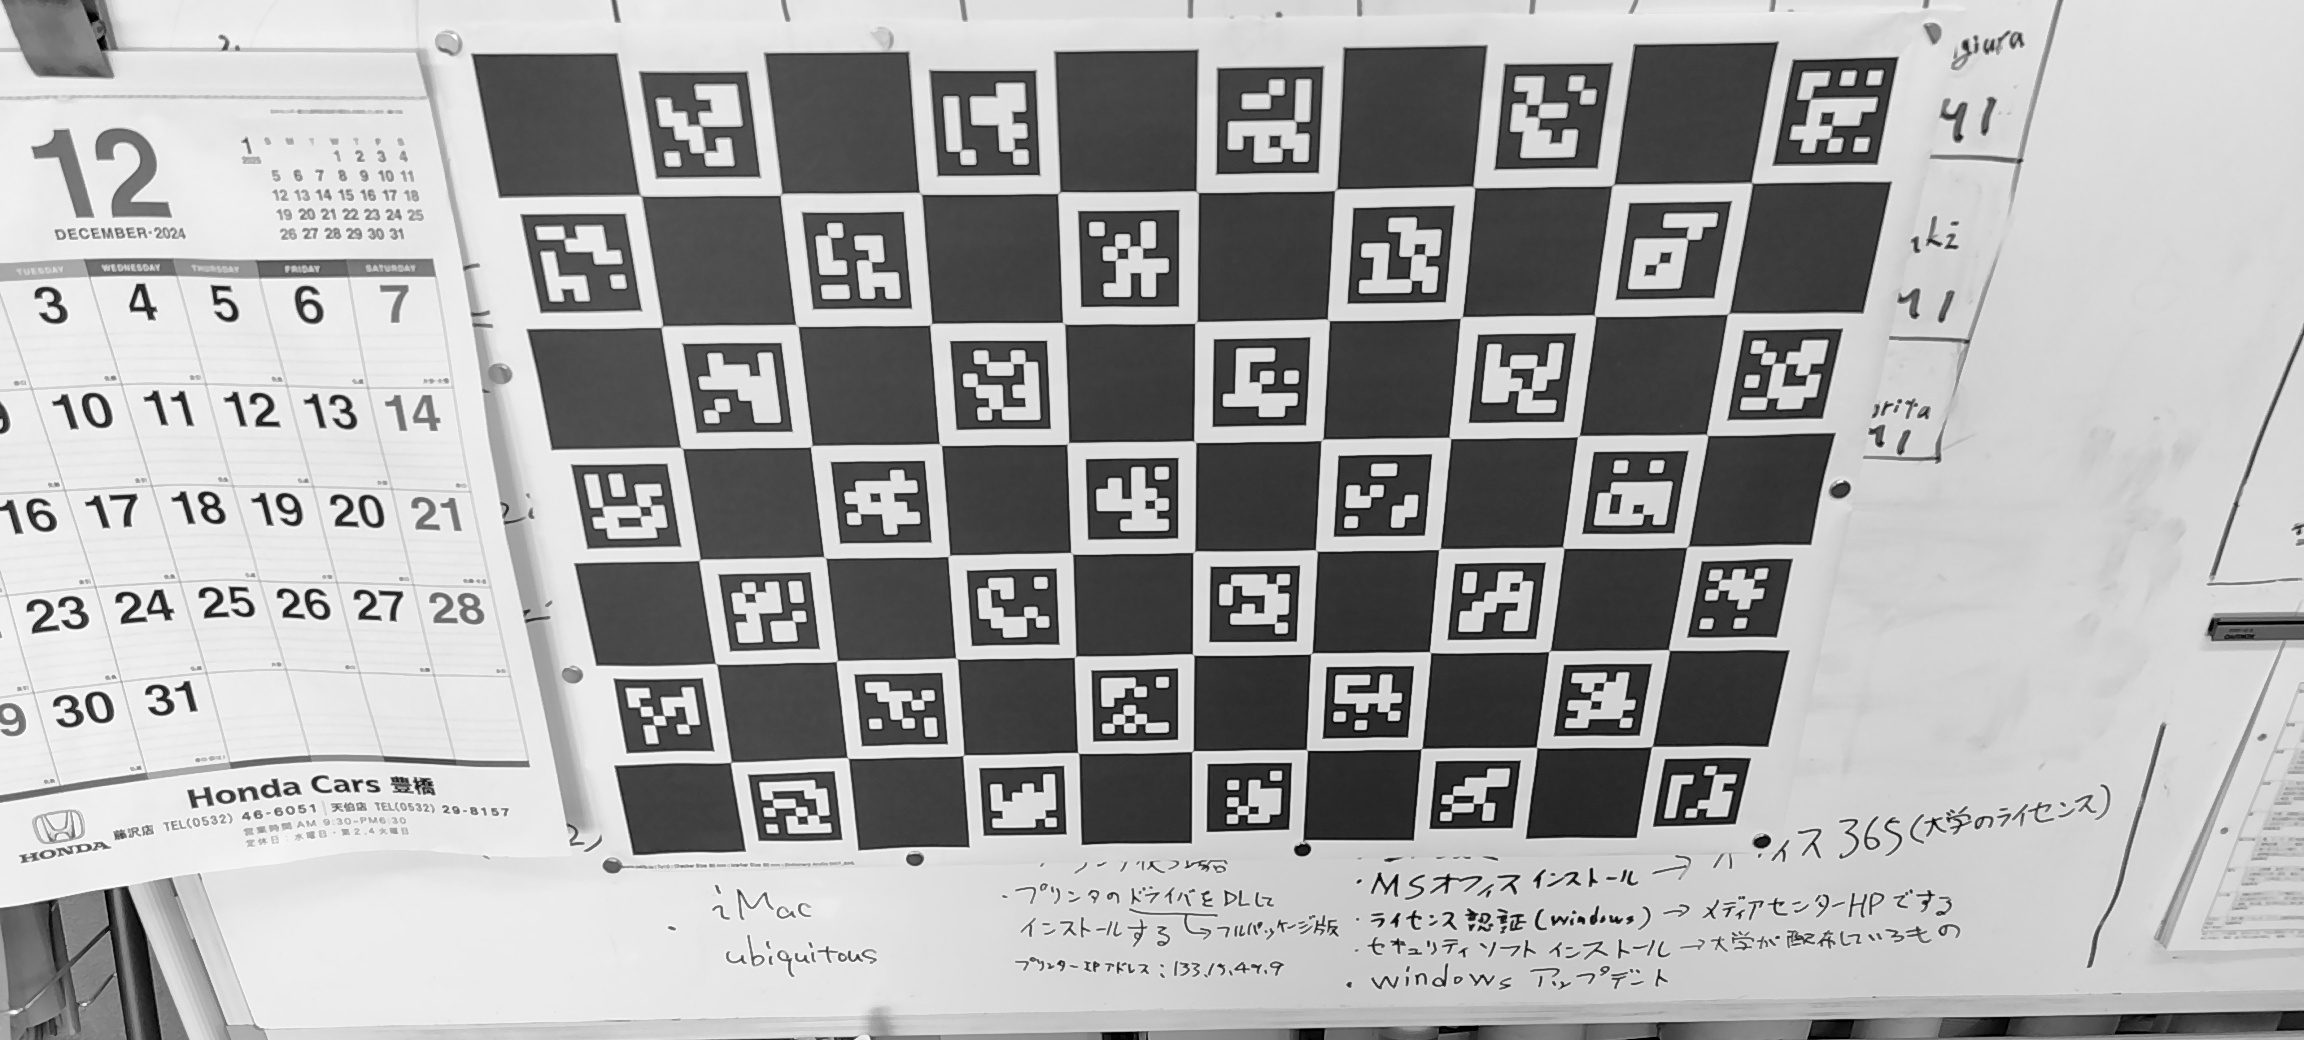 12
DECEMBER・2024
1
2025
S M T W T F S
1 2 3 4
5 6 7 8 9 10 11
12 13 14 15 16 17 18
19 20 21 22 23 24 25
26 27 28 29 30 31
TUESDAY WEDNESDAY THURSDAY FRIDAY SATURDAY
3 4 5 6 7
10 11 12 13 14
16 17 18 19 20 21
23 24 25 26 27 28
30 31
Honda Cars 豊橋
HONDA
藤沢店 TEL(0532) 46-6051 天伯店 TEL(0532) 29-8157
営業時間 AM 9:30-PM6:30
定休日:水曜日・第2.4火曜日
giura
41
iki
41
orita
41
・ iMac
ubiquitous
・プリンタのドライバをDLして
インストールする
→フルパッケージ版
プリンターIPアドレス:133.15.47.9
フィス365(大学のライセンス)
・MSオフィスインストール →
・ライセンス認証(windows) → メディアセンターHPでする
・セキュリティソフト インストール →大学が配布しているもの
・windows アップデート